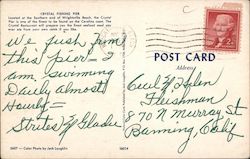 CRYSTAL FISHING PIER
Located at the Southern end of Wrightsville Beach, the Crystal
Pier is one of the finest to be found on the Carolina coast. The
Crystal Restaurant will prepare you the finest seafood meal you
ever ate from your own catch if you like.
We fish from
this pier - I
am swimming
Daily almost
Hourly -
POST CARD
Address:
Cecil & Helen
Fleishman
870 N Murray St
Banning, Calif
Color Photo by Jack Loughlin